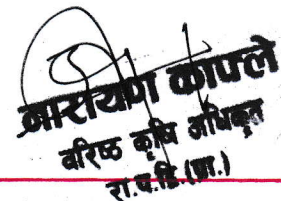 नारायण काफ्ले
वरिष्ठ कृषि अधिकृत
रा.प.द्वि.(प्रा.)